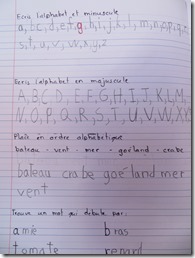 Ecris l'alphabet et minuscule
a, b, c, d, e, f, g, h, i, j, k, l, m, n, o, p, q, r,
s, t, u, v, w, x, y, z
Ecris l'alphabet en majuscule
A, B, C, D, E, F, G, H, I, J, K, L, M,
N, O, P, Q, R, S, T, U, V, W, X
Place en ordre alphabétique
bateau - vent - mer - goéland - crabe
bateau crabe goéland mer
vent
Trouve un mot qui débute par:
amie bras
tomate renard